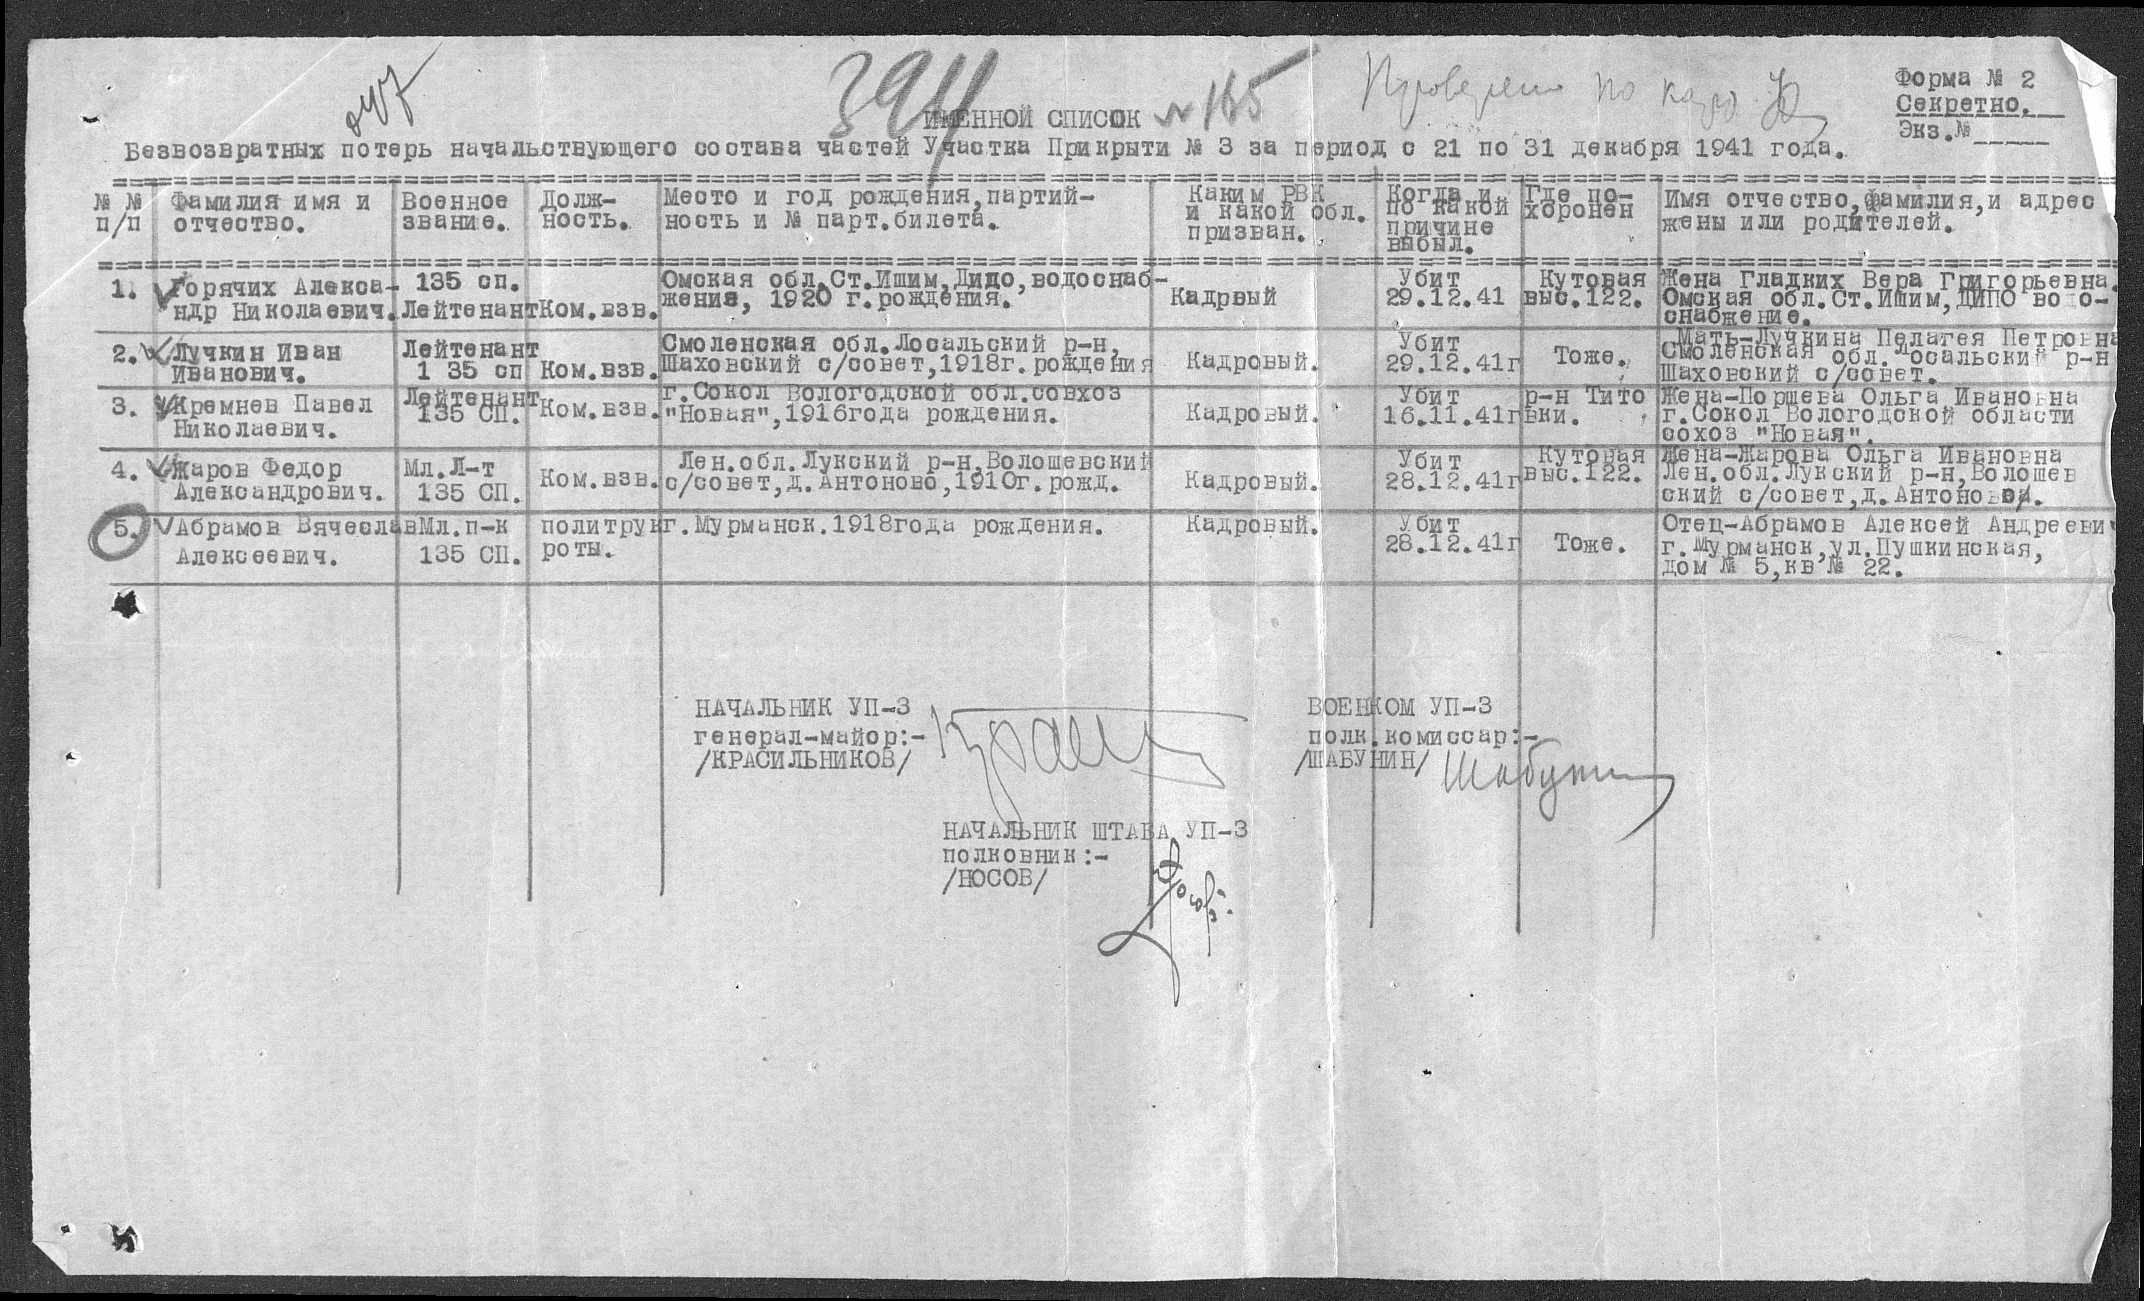 394
Форма № 2
Секретно.
Экз.№ _____
ИМЕННОЙ СПИСОК № 165
Безвозвратных потерь начальствующего состава частей Участка Прикрыти № 3 за период с 21 по 31 декабря 1941 года.
№ № п/п
Фамилия имя и отчество.
Военное звание.
Долж-ность.
Место и год рождения,партий-
ность и № парт.билета.
Каким РВК
и какой обл.
призван.
Когда и
по какой
причине
выбыл.
Где по-
хоронен
Имя отчество,фамилия,и адрес
жены или родителей.
1. Горячих Алекса-
ндр Николаевич.
135 сп.
Лейтенант
Ком.взв.
Омская обл.Ст.Ишим,Дидо,водоснаб-
жения, 1920 г.рождения.
Кадрвый
Убит
29.12.41
Кутовая
выс.122.
Жена Гладких Вера Григорьевна.
Омская обл.Ст.Ишим,ДИПО водо-
снабжение.
2. Лучкин Иван
Иванович.
Лейтенант
1 35 сп
Ком.взв.
Смоленская обл.Лосальский р-н,
Шаховский с/совет,1918г.рождения
Кадровый.
Убит
29.12.41г
Тоже.
Мать-Лучкина Пелагея Петровна
Смоленская обл. Лосальский р-н
Шаховский с/совет.
3. Кремнев Павел
Николаевич.
Лейтенант
135 СП.
Ком.взв.
г.Сокол Вологодской обл.совхоз
"Новая",1916года рождения.
Кадровый.
Убит
16.11.41г
р-н Тито
вки.
Жена-Поршева Ольга Ивановна
г.Сокол Вологодской области
сохоз "Новая".
4. Жаров Федор
Александрович.
Мл.Л-т
135 СП.
Ком.взв.
Лен.обл.Лукский р-н,Волошевский
с/совет,д.Антоново,1910г.рожд.
Кадровый.
Убит
28.12.41г
Кутовая
выс.122.
Жена-Жарова Ольга Ивановна
Лен.обл.Лукский р-н,Волошев
ский с/совет,д.Антоново.
5. Абрамов Вячеслав
Алексеевич.
Мл.п-к
135 СП.
политрук
роты.
г.Мурманск.1918года рождения.
Кадровый.
Убит
28.12.41г
Тоже.
Отец-Абрамов Алексей Андреевич
г.Мурманск,ул.Пушкинская,
дом № 5,кв № 22.
НАЧАЛЬНИК УП-3
генерал-майор:-
/КРАСИЛЬНИКОВ/
ВОЕНКОМ УП-3
полк.комиссар:-
/ШАБУНИН/ Шабунин
НАЧАЛЬНИК ШТАБА УП-3
полковник:-
/НОСОВ/